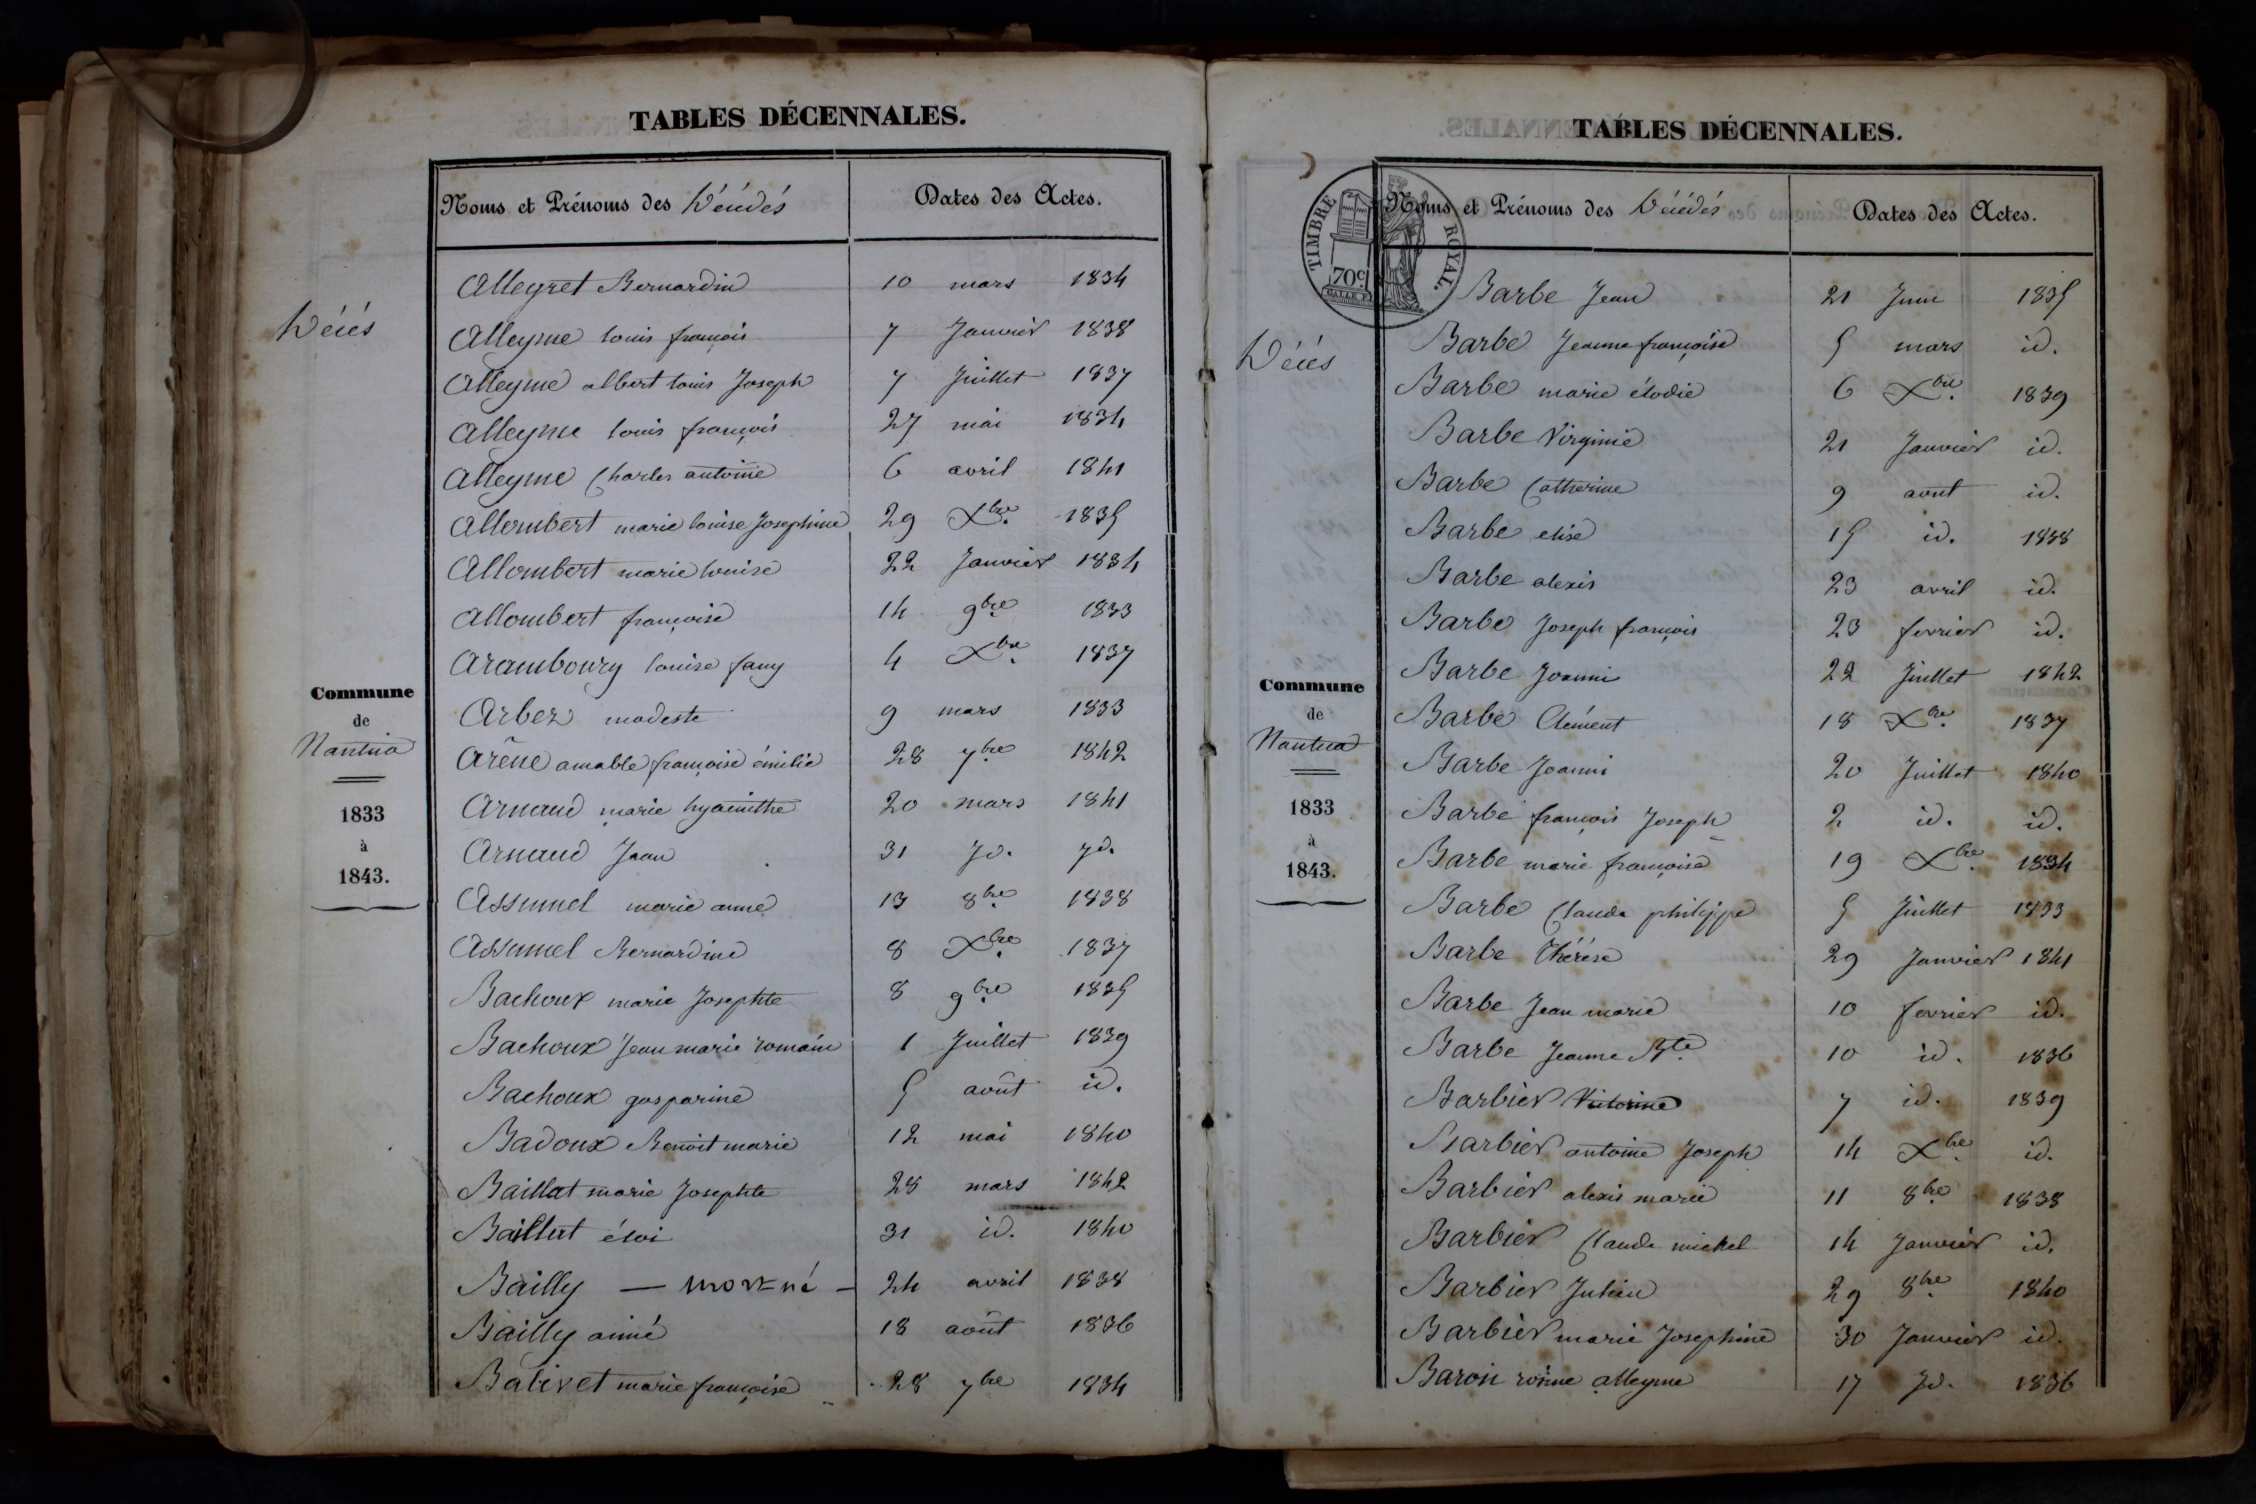 TABLES DÉCENNALES.
Noms et Prénoms des Décédés
Dates des Actes.
Décés
Commune
de
Nantua
1833
à
1843.
Alleyret Bernardin 10 mars 1834
Alleyme louis françois 7 Janvier 1838
Alleyme albert louis Joseph 7 Juillet 1837
Alleyme louis françois 27 mai 1834
Alleyme Charles antoine 6 avril 1841
Allombert marie louise Josephine 29 Xbre 1835
Allombert marie louise 22 Janvier 1834
Allombert françoise 14 9bre 1833
Arambourg louise fany 4 Xbre 1837
Arbez modeste 9 mars 1833
Arêne amable françoise émilie 28 7bre 1842
Arnaud marie hyacinthe 20 mars 1841
Arnaud Jean 31 Jd. Jd.
Assumel marie anne 13 8bre 1838
Assumel Bernardine 8 Xbre 1837
Bachoux marie Josephte 8 9bre 1835
Bachoux Jean marie romain 1 Juillet 1839
Bachoux gasparine 5 août id.
Badoux Benoit marie 12 mai 1840
Baillat marie Josephte 28 mars 1842
Baillat éloi 31 id. 1840
Bailly — mort né — 24 avril 1838
Bailly aimé 18 août 1836
Balivet marie françoise 28 7bre 1834
TABLES DÉCENNALES.
TIMBRE ROYAL.
70c
Noms et Prénoms des Décédés
Dates des Actes.
Décés
Commune
de
Nantua
1833
à
1843.
Barbe Jean 21 Juin 1835
Barbe Jeanne françoise 5 mars id.
Barbe marie élodie 6 Xbre. 1839
Barbe Virginie 21 Janvier id.
Barbe Catherine 9 aout id.
Barbe elise 15 id. 1838
Barbe alexis 23 avril id.
Barbe Joseph françois 23 fevrier id.
Barbe Joanni 22 Juillet 1842
Barbe Clément 18 Xbre. 1837
Barbe Joanni 20 Juillet 1840
Barbe françois Joseph 2 id. id.
Barbe marie françoise 19 Xbre 1834
Barbe Claude philippe 5 Juillet 1833
Barbe Thérése 29 Janvier 1841
Barbe Jean marie 10 fevrier id.
Barbe Jeanne Bte 10 id. 1836
Barbier Victorine 7 id. 1839
Barbier antoine Joseph 14 Xbre id.
Barbier alexis marie 11 8bre 1838
Barbier Claude michel 14 Janvier id.
Barbier Julien 29 8bre 1840
Barbier marie Josephine 30 Janvier id.
Baron alleyme 17 Jd. 1836